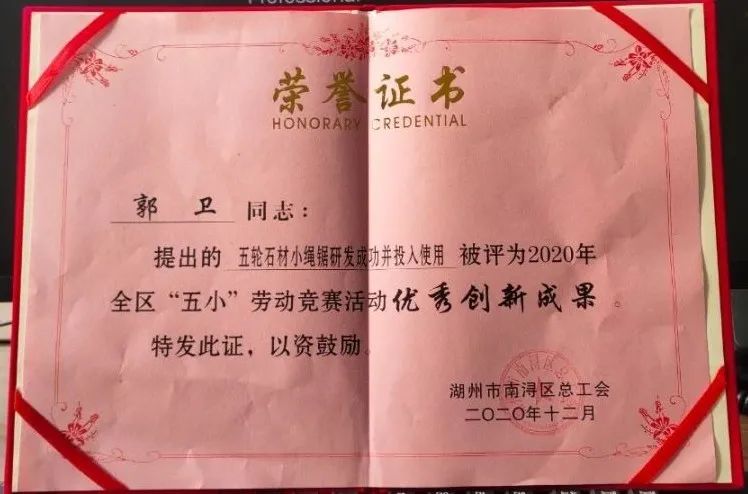 Professional
荣誉证书
HONORARY CREDENTIAL
郭 卫 同志：
提出的 五轮石材小绳锯研发成功并投入使用 被评为2020年
全区“五小”劳动竞赛活动优秀创新成果。
特发此证，以资鼓励。
湖州市南浔区总工会
二〇二〇年十二月